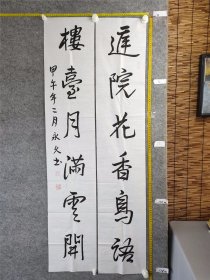 庭院花香鳥語
樓臺月滿雲開
甲午年二月永文书